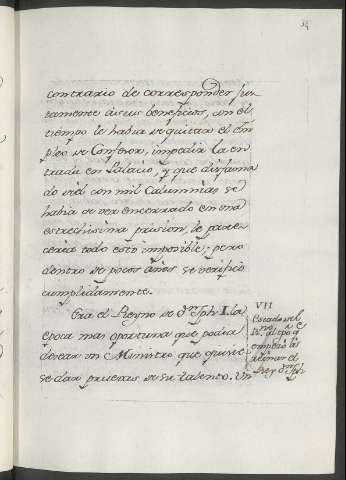 contrario de corresponder jun-
tamente à sus beneficios, con el
tiempo le habia de quitar el em-
pleo de Confesor, impedir la en-
trada en Palacio, y que disfama-
do del con mil Calumnias se
habia de ver encerrado en una
estrechisima prision, le pare-
ceria todo esto imposible; pero
dentro de pocos años se verificó
cumplidamente.
Era el Reyno de Dn. Jph I. la
epoca mas oportuna que podia
desear un Ministro que quisie-
se dar pruevas de su talento. Un
VII
Estado del
Rno. al tpo. q
empezó à
reinar el
Rey Dn. Jph